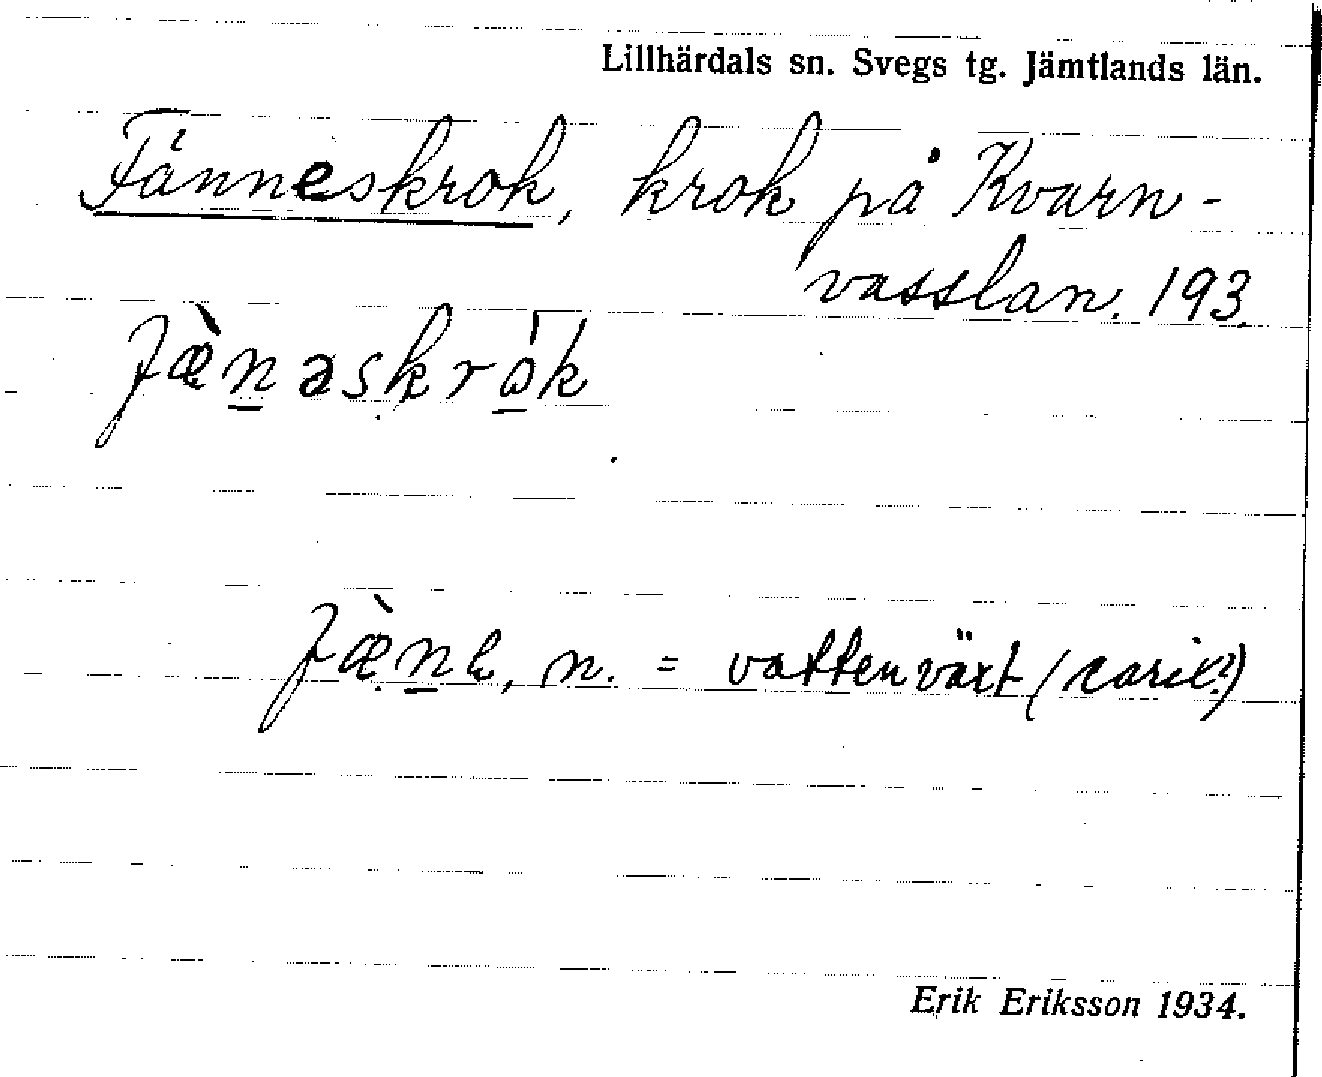 Lillhärdals sn. Svegs tg. Jämtlands län.
Fänneskrok, krok på Kvarn-
vasslan. 193.
fæ̀nəskrok
fæ̀nə, n. = vattenväxt (carix?)
Erik Eriksson 1934.